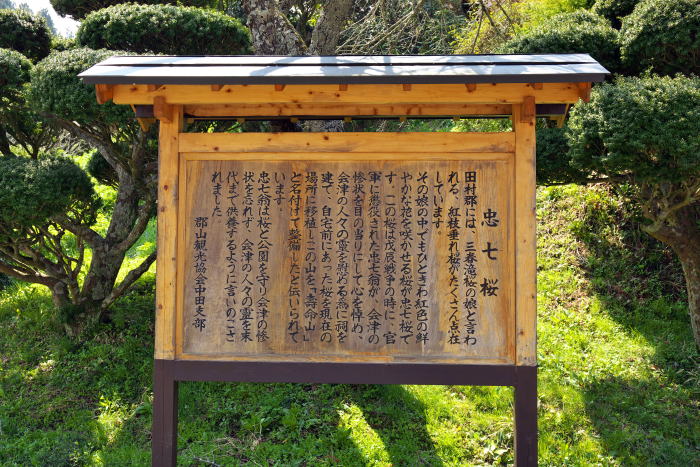 忠七桜
田村郡には、三春滝桜の娘と言わ
れる、紅枝垂れ桜がたくさん点在
しています。
その娘の中でもひときわ紅色の鮮
やかな花を咲かせる桜が忠七桜で
す。この桜は戊辰戦争の時に、官
軍に懲役された忠七翁が、会津の
惨状を目の当りにして心を悼め、
会津の人々の霊を慰める為に祠を
建て、自宅前にあった桜を現在の
場所に移植しこの山を、「壽命山」
と名付けて整備したと伝いられて
います。
忠七翁は桜と公園を守り会津の惨
状を忘れず、会津の人々の霊を末
代まで供養するように言いのこさ
れました。
郡山観光協会中田支部